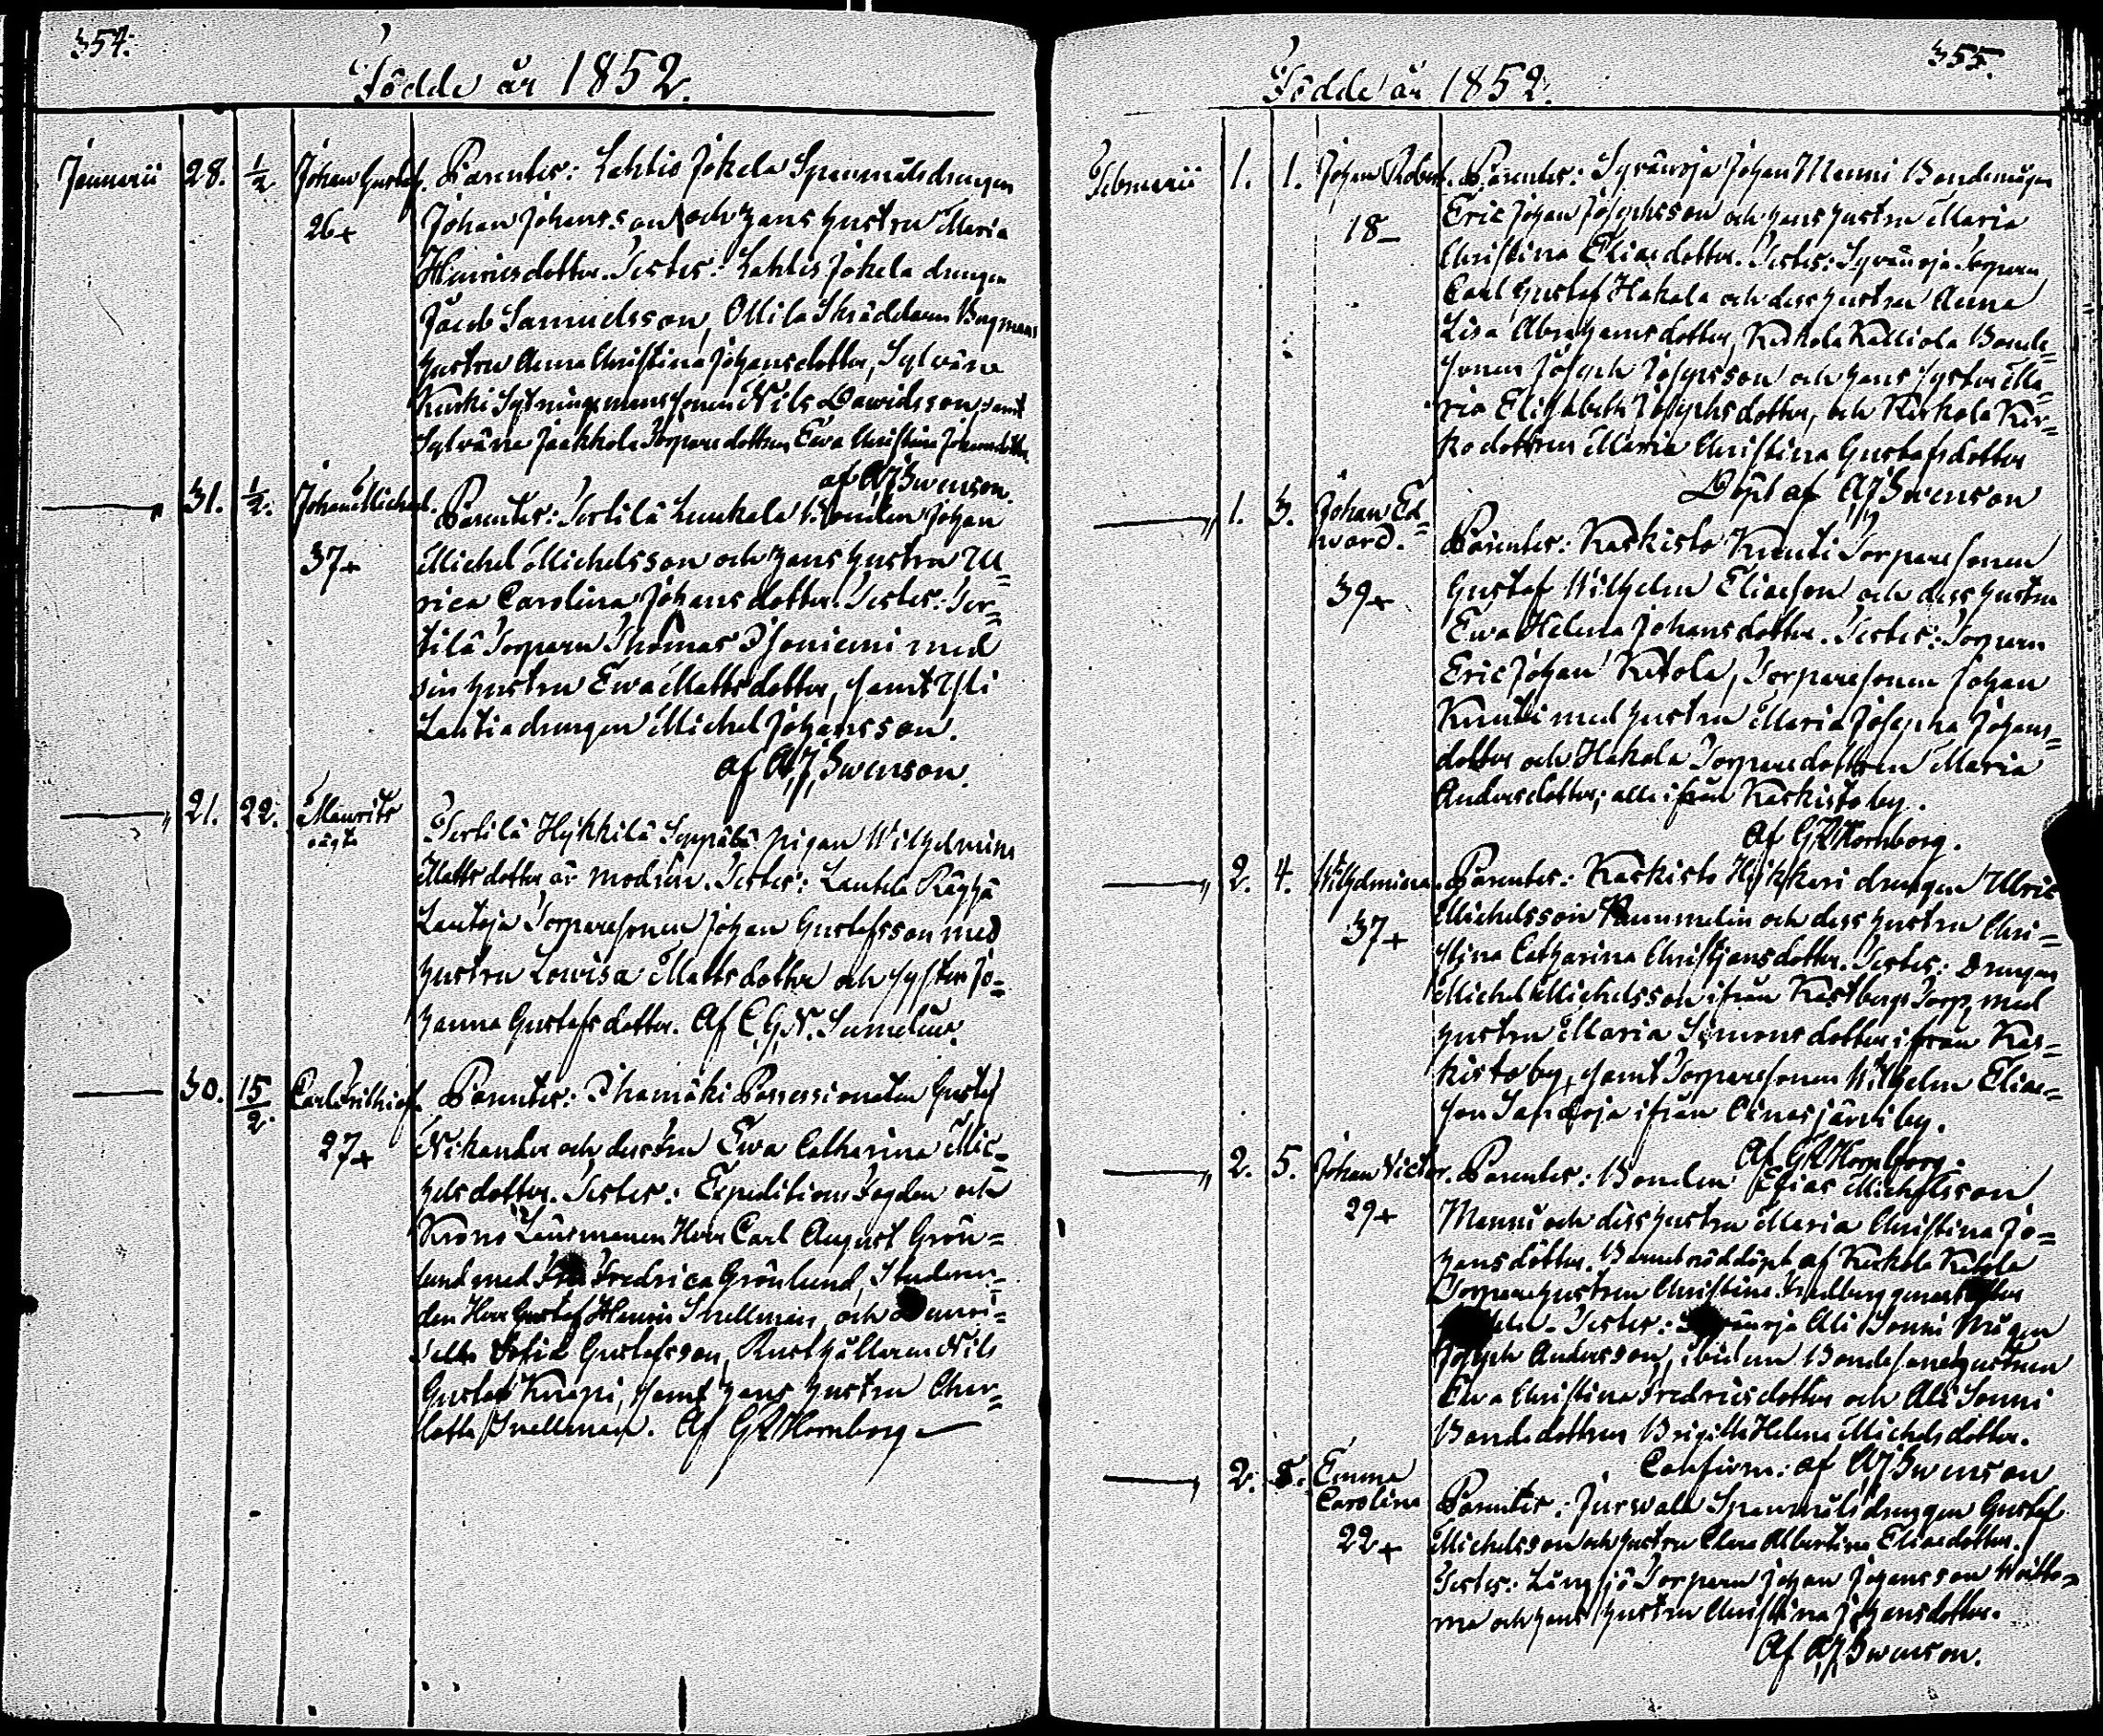 354.
Födde år 1852.
Januarii 28. 1/2 Johan Gustaf. Parentes: Lahtis Jokela Spanmålsdrängen
26+ Johan Johansson och hans hustru Maria
Henricsdotter. Testes: Lahtis Jokela drängen
Jacob Samuelsson, Ollila Skräddaren Bergmans
hustru Anna Christina Johansdotter, Sylvänä
Kurki Sytningsmanssonen Nils Davidsson, samt
Sylvänä Jaakkola Torparedottren Eva Christina Johansdotter.
af A J Swenson.
— " 31. 1/2. Johan Michael. Parentes: Tertilä Luukala Bonden Johan
37+ Michel Michelsson och hans hustru Ul=
rica Carolina Johansdotter. Testes: Ter=
tilä Torparen Thomas Isoniemi med
sin hustru Ewa Mattsdotter, samt Yli
Lautia drängen Michel Johansson.
af A J Swenson.
— " 21. 22. Maurits Tertilä Hykkilä Seppälä pigan Wilhelmina
oägta Mattsdotter är modren. Testes: Lautela Räyhä
Lautoja Torparesonen Johan Gustafsson med
hustru Lowisa Mattsdotter och syster Jo=
hanna Gustafsdotter. Af C. G. N. Sumelius.
— 30. 15/2. Carl Frithiof. Parentes: Ihamäki Possessionaten Gustaf
27+ Nikander och dess Fru Ewa Catharina Mic=
helsdotter. Testes: Expeditions Fogden och
Krono Länsmannen Herr Carl August Grön=
lund med Fru Fredrica Grönlund, Studeran=
den Herr Gustaf Henric Snellman, och Demoi=
selle Sofia Gustafsson, Rusthållaren Nils
Gustaf Knapi, samt hans hustru Char=
lotta Snellman. Af G R Hornborg.
355.
Födde år 1852.
Februarii 1. 1. Johan Robert. Parentes: Syvänoja Johan Manni Bondemågen
18— Eric Johan Josephsson och hans hustru Maria
Christina Eliaedotter. Testes: Syvänoja Torparen
Carl Gustaf Hakala och dess hustru Anna
Lisa Abrahamsdotter, Kerkola Kalliola Bonde=
sonen Joseph Josepsson och hans syster Ma=
ria Elisabeth Josephsdotter, och Kerkola Ker=
ko dottren Maria Christina Gustafsdotter
Döpt af A J Swenson
— " 1. 3. Johan Ed= Parentes: Kaskisto Knuti Torparesonen
vard. Gustaf Wilhelm Eliaeson och dess hustru
39+ Ewa Helena Johansdotter. Testes: Torparen
Eric Johan Ketola, Torparesonen Johan
Knuti med hustru Maria Josepha Johans=
dotter och Hakala Torparedottren Maria
Andersdotter; alla ifrån Kaskisto by.
Af G R Hornborg.
— " 2. 4. Wilhelmina. Parentes: Kaskisto Hykkeri drängen Ulric
37+ Michelsson Rummelin och dess hustru Chri=
stina Catharina Christjansdotter. Testes: Drängen
Michel Michelsson ifrån Kastberga Torp, med
hustru Maria Simonsdotter ifrån Kas=
kisto by, samt Torparesonen Wilhelm Eliae=
son Santoja ifrån Oinasjärvi by.
Af G R Hornborg.
— " 2. 5. Johan Victor. Parentes: Bonden Elias Michelsson
29+ Manni och dess hustru Maria Christina Jo=
hansdotter. Barnet nöddöpt af Kerkola Ketola
Torparehustrun Christina Fredberg
Testes: Syvänoja Ali Sonni Mågen
Joseph Andersson, ibidem Bondesonehustrun
Ewa Christina Fredricsdotter och Ali Sonni
Bondedottren Brigitta Helena Michelsdotter.
Confirm: af A J Swenson
— " 2. 8. Emma Parentes: Jurvala Spanmålsdrängen Gustaf
Carolina Michelsson och hustru Clara Albertina Eliaedotter.
22+ Testes: Långsjö Torparen Johan Johansson Walta=
ma och hans hustru Christina Johansdotter.
Af A J Swenson.